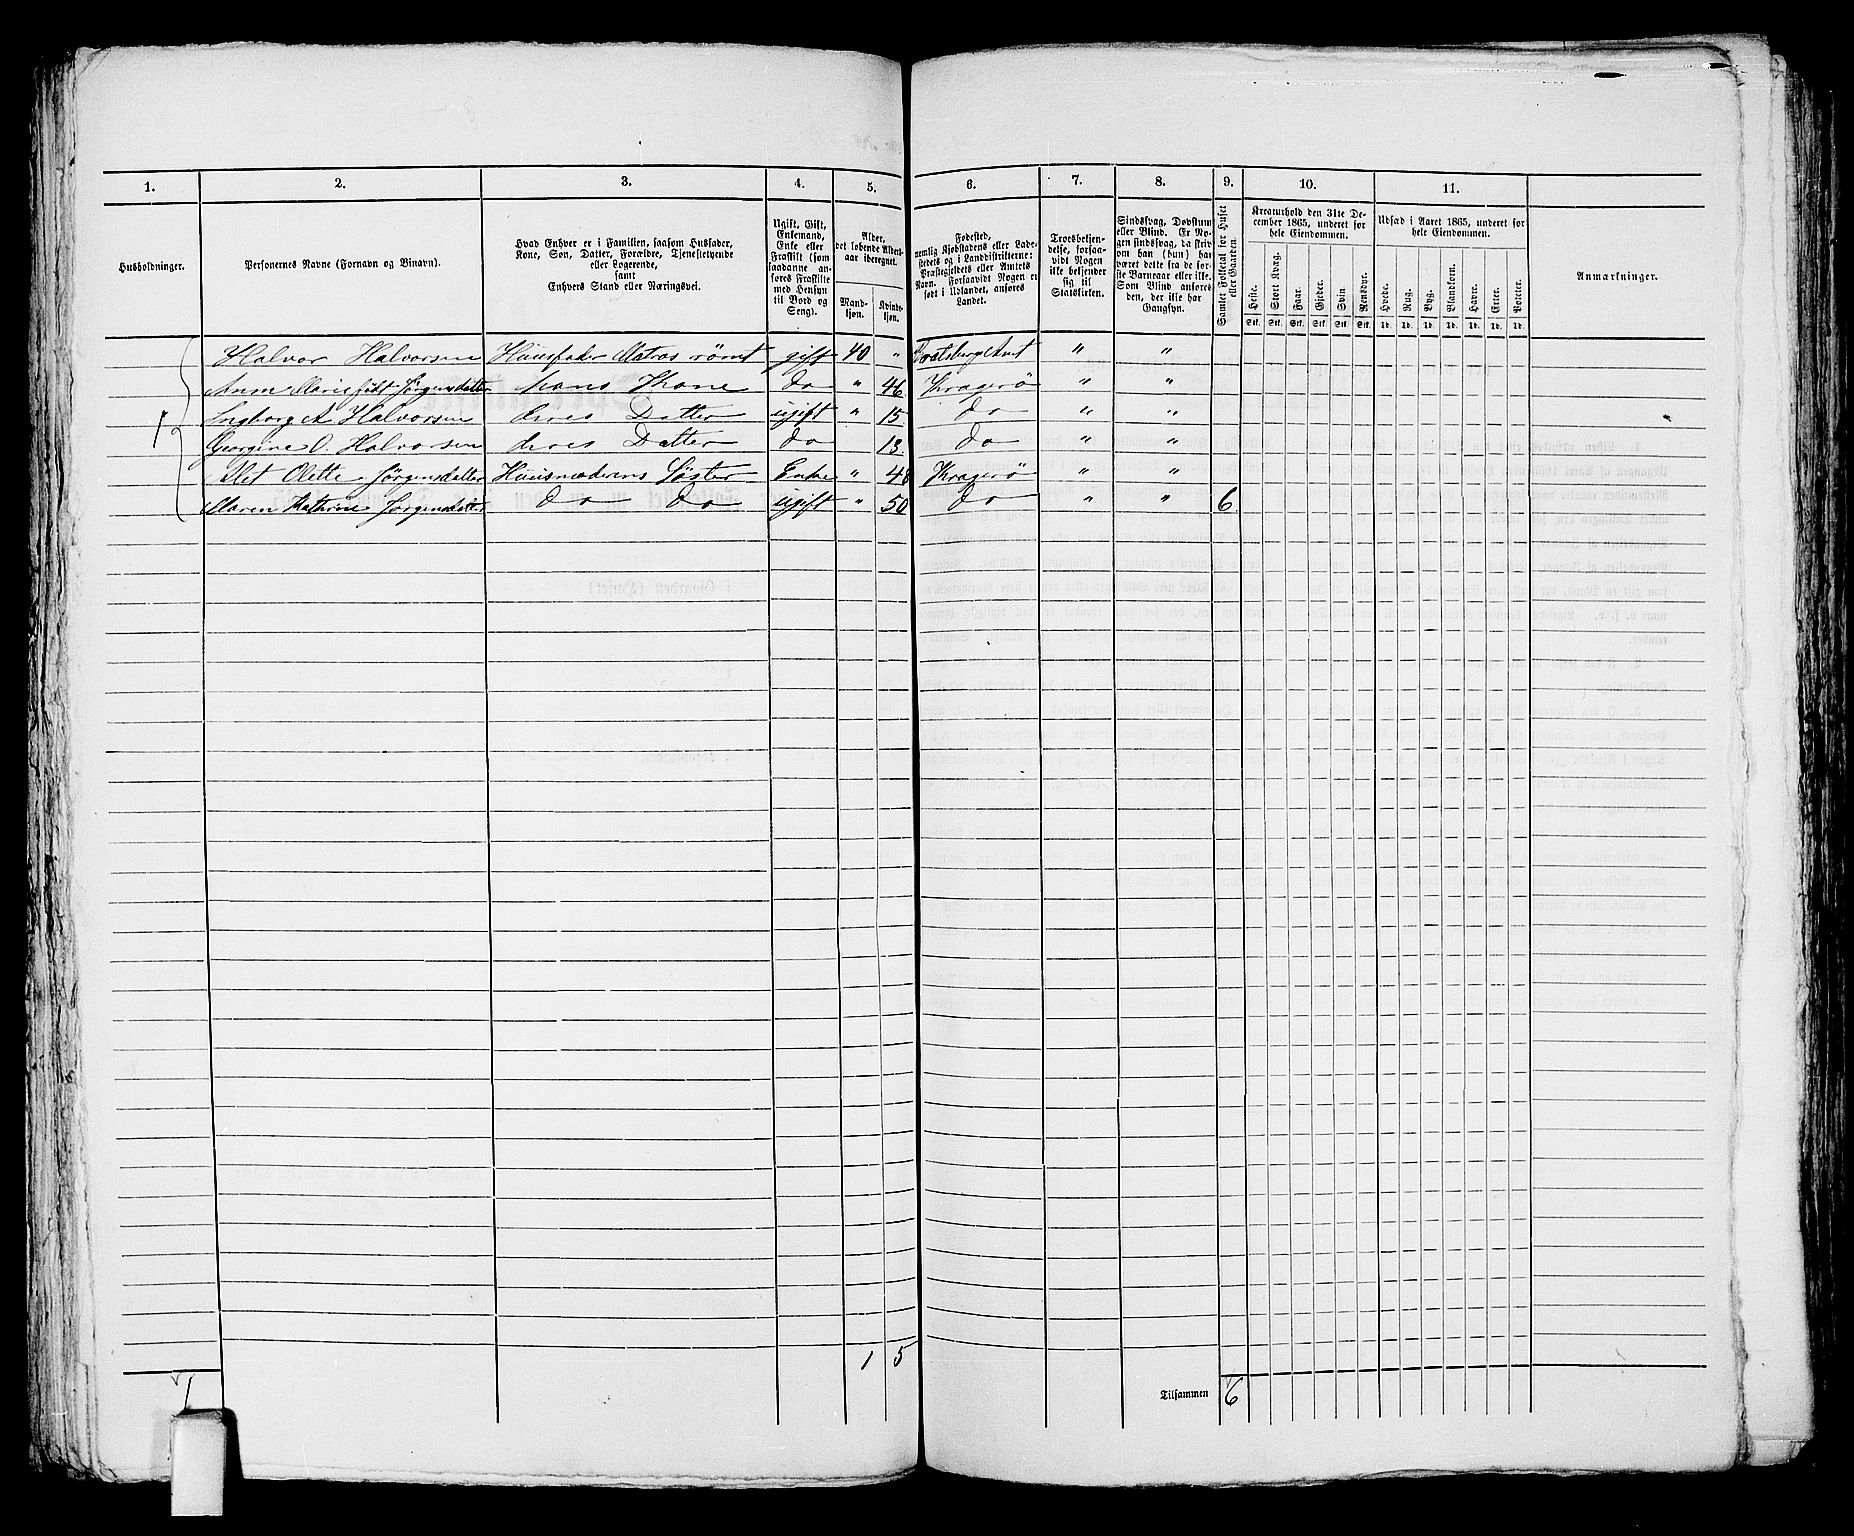 1. 2. 3. 4. 5. 6. 7. 8. 9. 10. 11.
Husholdninger.
Personernes Navne (Fornavn og Binavn).
Hvad Enhver er i Familien, saasom Husfader,
Kone, Søn, Datter, Forældre, Tjenestetyende
eller Logerende,
samt
Enhvers Stand eller Næringsvei.
Ugift, Gift,
Enkemand,
Enke eller
Fraskilt (som
saadanne an-
føres Fraskilte
med Hensyn
til Bord og
Seng).
Alder,
det løbende Alders-
aar iberegnet.
Mand-
kjøn.
Kvinde-
kjøn.
Fødested,
nemlig Kjøbstadens eller Lade-
stedets og i Landdistrikterne:
Præstegjeldets eller Amtets
Navn. Forsaavidt Nogen er
født i Udlandet, anføres
Landet.
Troesbekjen-
delse, forsaa-
vidt Nogen
ikke bekjender
sig til
Statskirken.
Sindssvag, Døvstum
eller Blind. Er No-
gen sindssvag, da skriv
om han (hun) har
været dette fra de før-
ste Barneaar eller ikke.
Som Blind anføres
den, der ikke har
Gangsyn.
Samlet Folketal for Huset
eller Gaarden.
Kreaturhold den 31te De-
cember 1865, underet for
hele Eiendommen.
Heste. Stort Kvæg. Faar. Gjeder. Svin Rensdyr.
Stk. Stk. Stk. Stk. Stk. Stk.
Udsæd i Aaret 1865, underet for
hele Eiendommen.
Hvede. Rug. Byg. Blandkorn. Havre. Erter. Poteter.
Td. Td. Td. Td. Td. Td. Td.
Anmærkninger.
Halvor Halvorsen Huusfader Matros rømt gift 40 " Bratsberg Amt " "
Anne Marie født Jørgensdatter hans Kone do " 46 Kragerö " "
1 Ingborg A Halvorsen deres Datter ugift " 15 do " "
Georgine O. Halvorsen deres Datter do 13 do " "
Met Olette Jørgensdatter Huusmoderens Søster Enke " 48 Kragerö " "
Maren Kathrine Jørgensdatter do do ugift " 50 do " " 6
1 5
1 Tilsammen 6